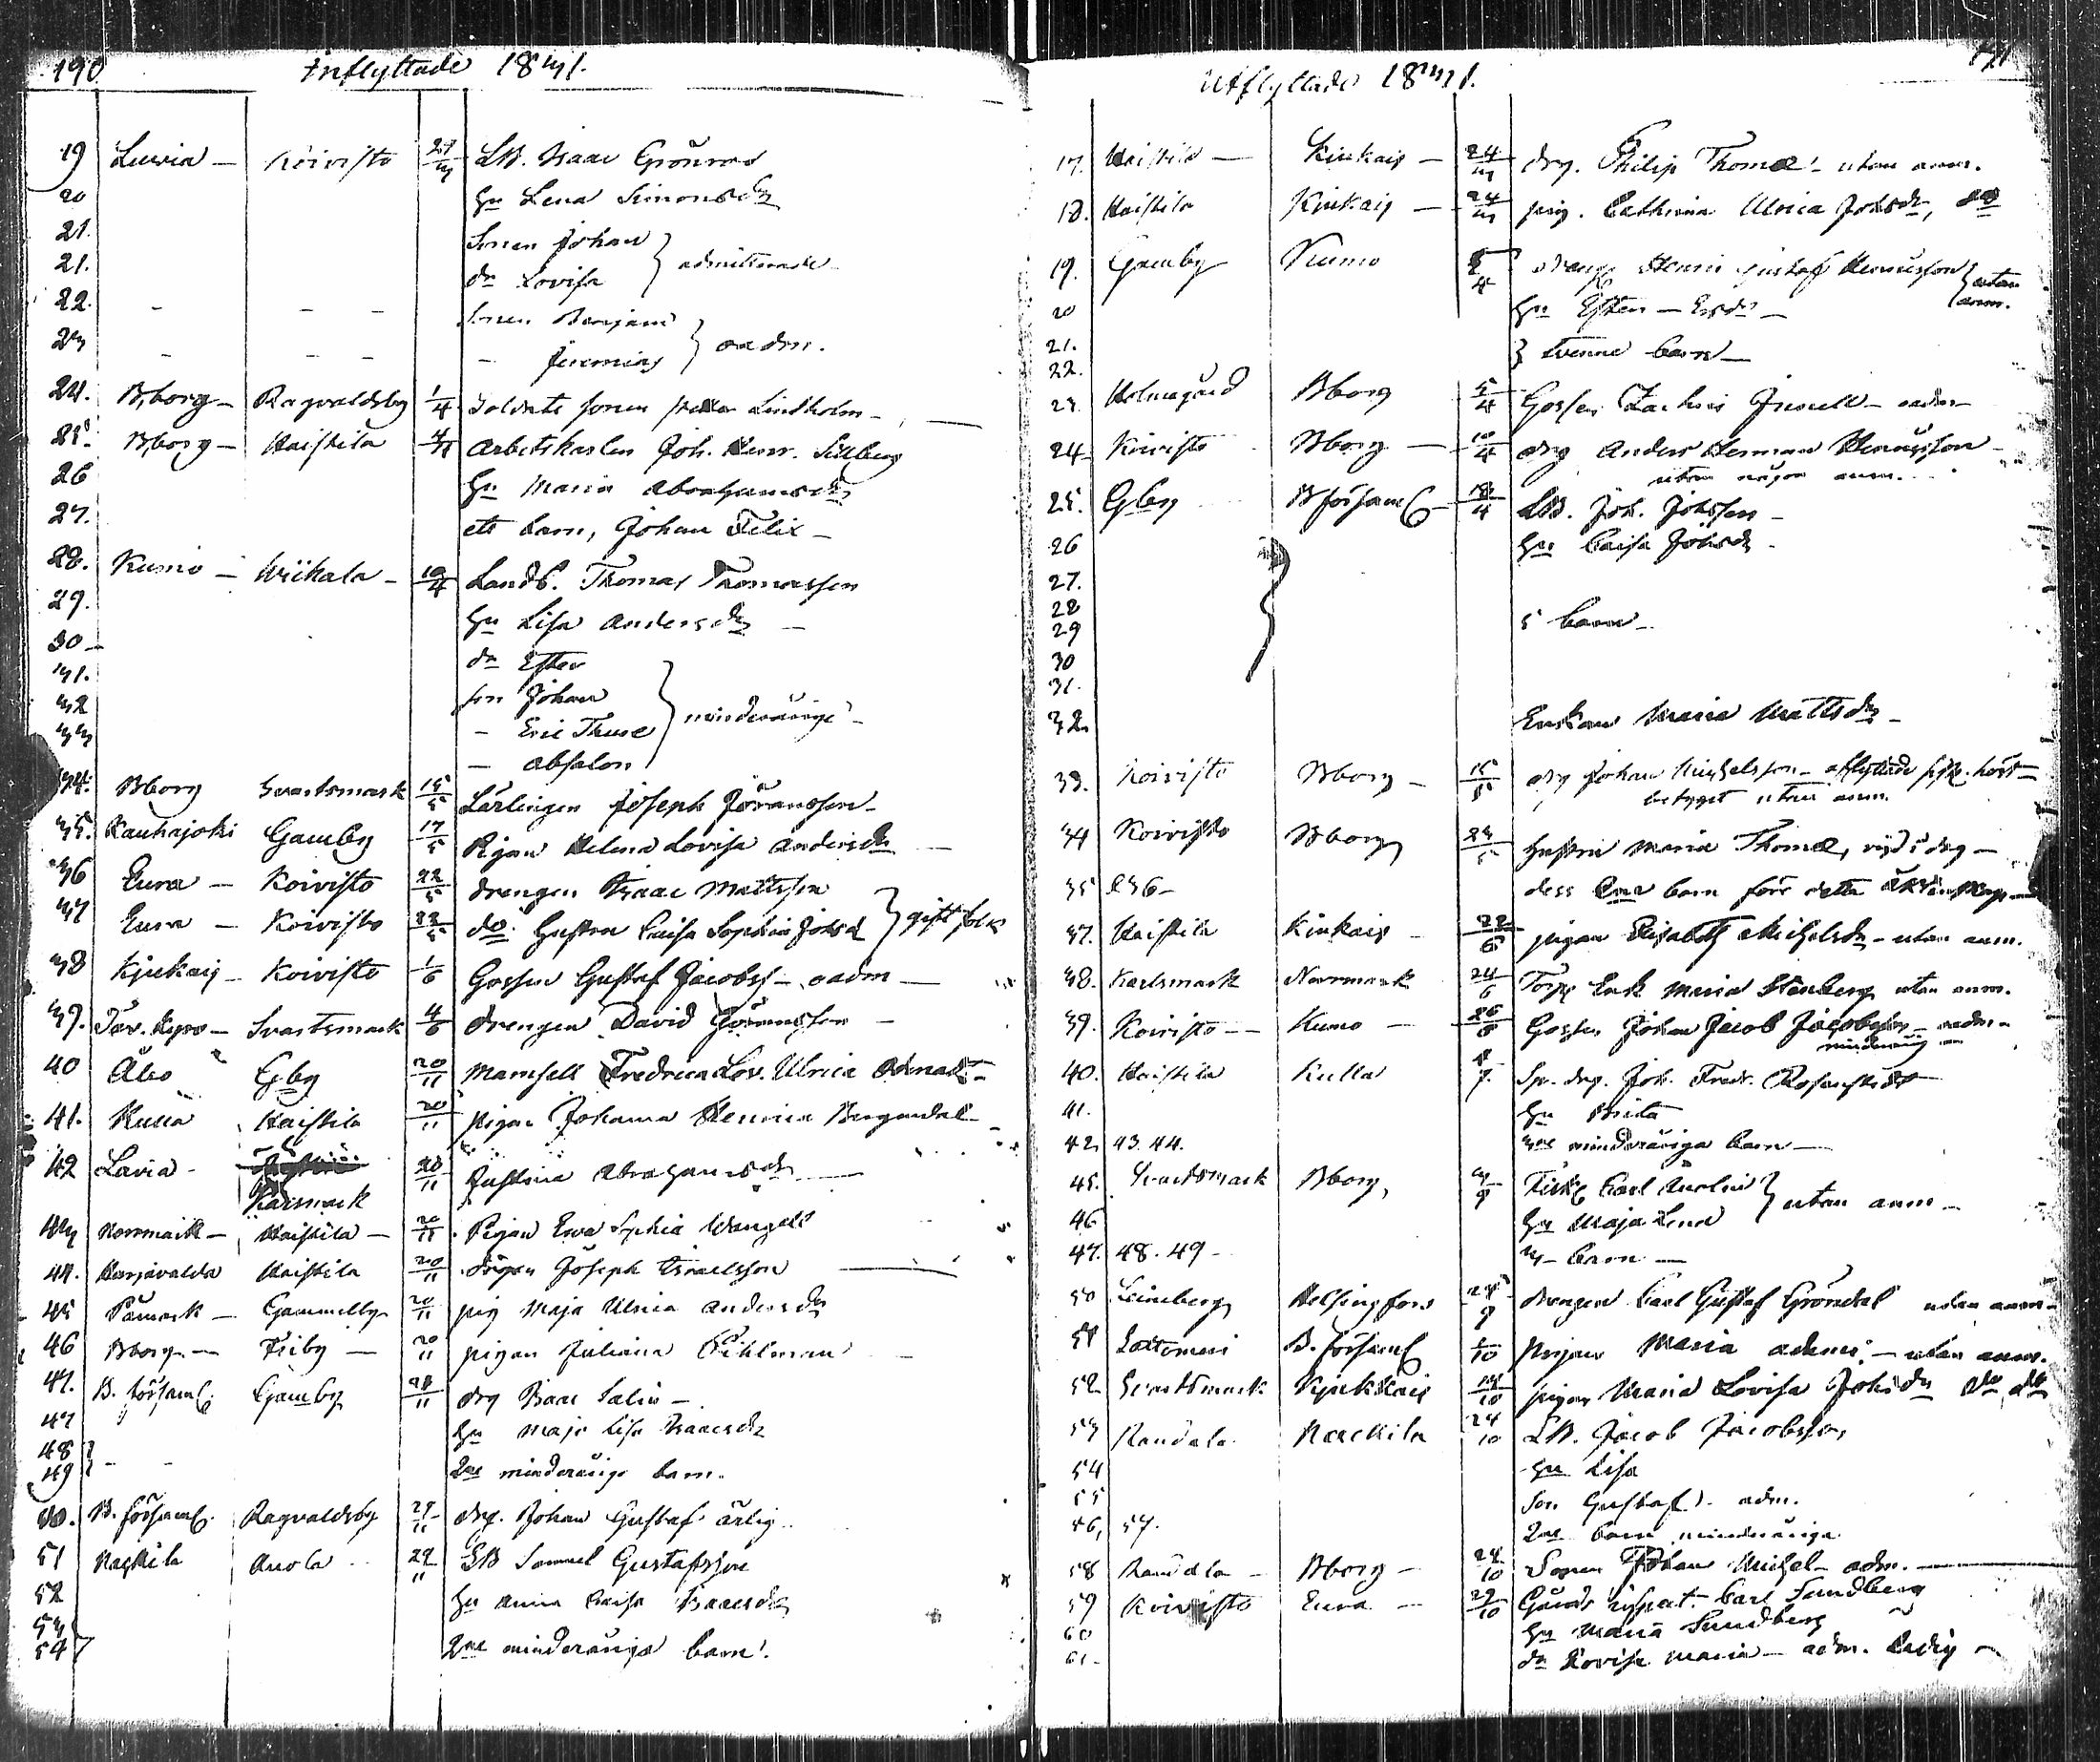 190 Inflyttade 1831.
19 Luvia – Koivisto 27/3 LB. Isaac Grönroos
20 Hu Lena Simonsdr
21. Sonen Johan
21. dr Lovisa } admitterade
22. – – – Sonen Benjam
23 – – – – Jeremias } oadm.
24. Bborg – Ragvaldsby 1/4 Soldats sonen Lindholm –
25. Bborg – Haistila Arbetskarlen Joh. Henr. Sedberg
26 Hu Maria Abrahamsdr
27. ett barn, Johan Felix –
28. Kumo – Wiikala – 10/4 Landb. Thomas Thomasson
29. Hu Lisa Andersdr –
30 – dr Ester
31. son Johan
32 – Eric Thure } minderårige –
33 – Absalon
34. Bborg Svartsmark 15/5 Lärlingen Joseph Göransson –
35. Kauhajoki Gamby 17/5 Pigan Helena Lovisa Andersdr –
36 Eura – Koivisto 22/5 Drengen Isaac Mattsson
37 Eura – Koivisto 22/5 do. Hustru Caisa Sophia Johsd } gift folk
38 Kjukais – Koivisto 1/6 Gossen Gustaf Jacobss – oadm –
39. Tav. Kyro – Svartsmark 4/6 Drengen David Göransson –
40 Åbo Gby 20/11 Mamsell Fredrica Lov. Ulrica
41. Kulla Haistila 20/11 pigan Johanna Henrica Bergendal –
42 Lavia – Karsmark 20/11 Justina Abrahamsdr –
43 Norrmark – Haistila – 20/11 Pigan Eva Sophia Wangell
44. Harjavalda Haistila 20/11 drgen Joseph Israelsson –
45 Påmark – Gammelby 20/11 pig Maja Ulrica Andersdr
46 Bborg – Friby – 20/11 pigan Juliana Pihlman –
47. B. församl. Gamby 28/11 drg Isaac Salin –
47 Hu Maja Lisa Isaacsdr
48
49 } – – 2ne minderårige barn.
50. B. församl. Ragvaldsby 29/11 drg. Johan Gustaf ärlig
51 Nackila Anola 29/11 LB Samuel Gustafsson
52 Hu Anna Caisa Isaacsdr
53
54 } 2ne minderåriga barn.
Utflyttade 1831. 191
17. Haistila – Kiukais – 24/3 drg. Philip Thomæ – utan anm.
18. Haistila Kiukais – 24/3 pig. Cathrina Ulrica Johsdr, do
19. Gamby Kumo 4 drengen Henric Gustaf Henricsson } utan anm.
20 Hu Ester – Ersdr –
21.
22. } tvenne barn –
23. Holmegård Bborg 5/4 Gossen Zachris – oadm –
24. Koivisto Bborg – 10/4 drg Anders Herman Henricsson –
utan någon anm.
25. Gby B församl – 18/4 LB. Joh. Johsson –
26 Hu Caisa Johsdr –
27.
28
29 5 barn –
30
31.
32. Enkan Maria Mattsdr –
33. Koivisto Bborg – 15/5 drg Johan Michelsson – afflyttade sistl. höst –
betyget utan anm.
34 Koivisto Bborg 23/5 Hustru Maria Thomæ,
35 & 36 – dess barn före detta
37. Haistila Kiukais – 22/6 pigan Elisabeth Michelsdr – utan anm.
38. Karlsmark Norrmark 24/6 Torp. Enk Maria Stenberg utan anm.
39. Koivisto – Kumo – 26/6 Gossen Johan Jacob Jacobsson – oadm –
minderårig
40. Haistila Kulla 7. Sp. drg. Joh. Fredr. Rosenstedt
41. Hu Brita
42. 43. 44. 3ne minderåriga barn –
45. Svartsmark Bborg, 3/9 Carl } utan anm –
46 Hu Maja Lena
47. 48. 49 – 3 – barn –
50 Leineberg Helsingfors 28/9 drengen Carl Gustaf Gröndal utan anm –
51 Lattomeri B. församl 1/10 Pigan Maria – utan anm.
52 Svartsmark Kjukkais 14/10 pigan Maria Lovisa Johsdr do do
53 Randala Nackila 24/10 LB. Jacob Jacobsson
54 Hu Lisa
55 Son Gustaf – adm.
56, 57. 2ne barn minderåriga
58 Randala – Bborg – 24/10 Sonen Johan Michel – adm. –
59 Koivisto Eura – 29/10 Gårds inspect. Carl Sundberg
60 Hu Maria Sundberg
61 – dr Lovisa Maria – adm. ledig –